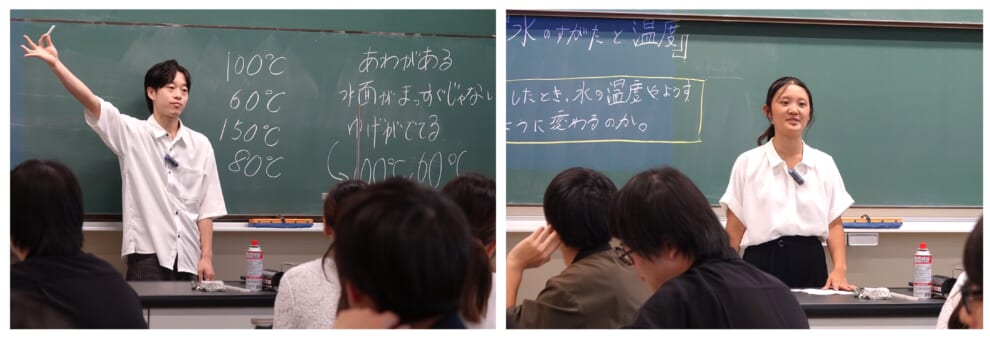 100℃
60℃
150℃
80℃
あわがある
水面がまっすぐじゃない
ゆげがでてる
100℃ 60℃
『水のすがたと温度』
したとき、水の温度やようす
ように変わるのか。